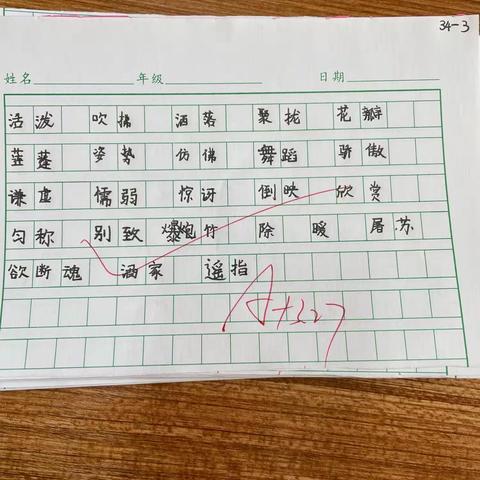 34-3
姓名 年级 日期
活泼 吹拂 洒落 聚拢 花瓣
莲蓬 姿势 仿佛 舞蹈 骄傲
谦虚 懦弱 惊讶 倒映 欣赏
匀称 别致 爆竹 除 暖 屠苏
欲断魂 酒家 遥指
A+